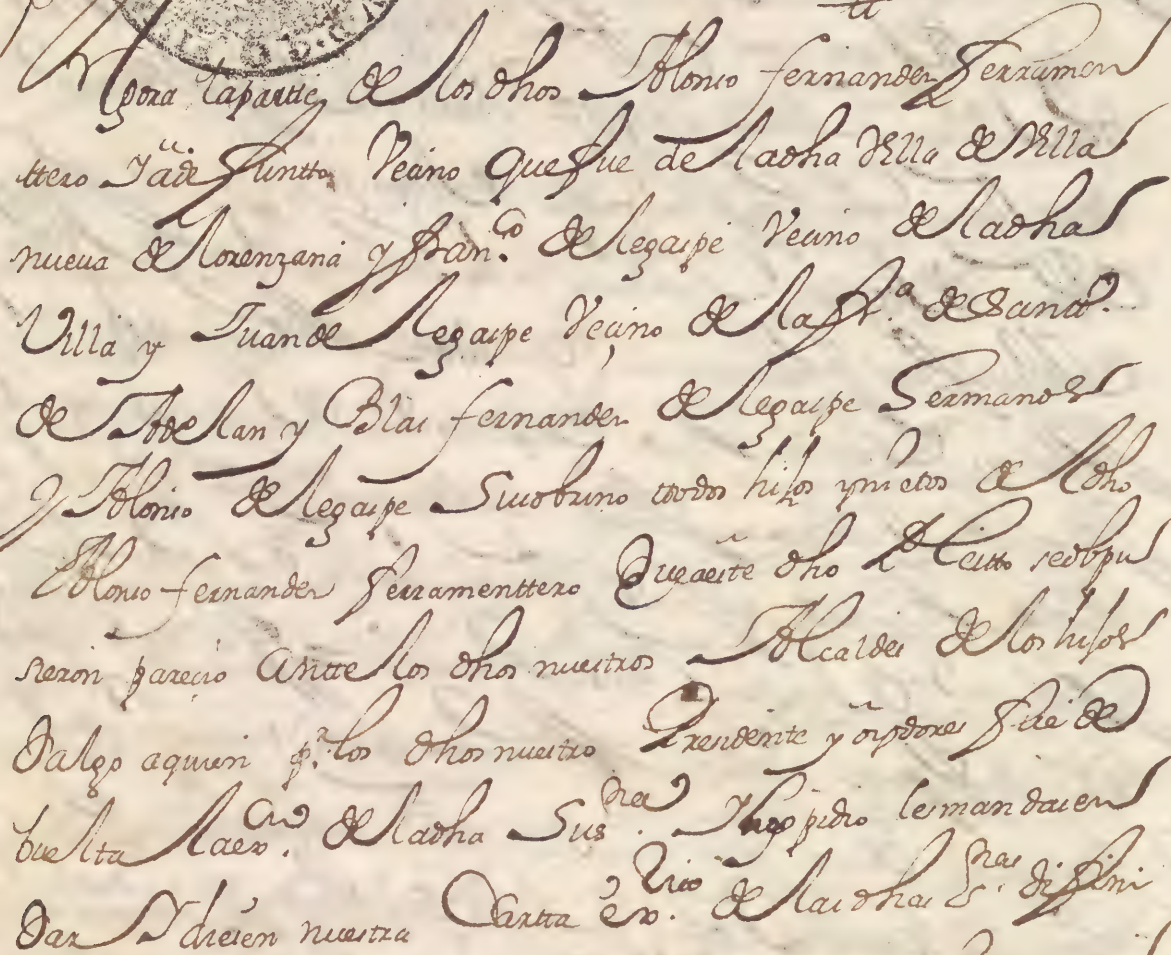 Y agora la parte de los dhos Alonso fernandez ferramen
ttero Ya defuntto Vecino que fue de la dha Villa de Villa
nueva de lorenzana y fran.co de legaspe Vecino de la dha
Villa y Juan de legaspe Veçino de la ff.a de Sanct.o
de Adelan y Blas fernandez de legaspe Hermanos
y Alonso de legaspe Su sobrino todos hijos y nietos de el dho
Alonso fernandez ferramenttero que a este dho Pleitto se opu
sieron pareçio Antte los dhos nuestros Alcaldes de los hijos
Dalgo a quien p.r los dhos nuestro Presidente y oydores fue de
buelta la ex.on de la dha Sus Y nos pidio les mandasen
Dar Y diesen nuestra Cartta ex. de las dhas difini